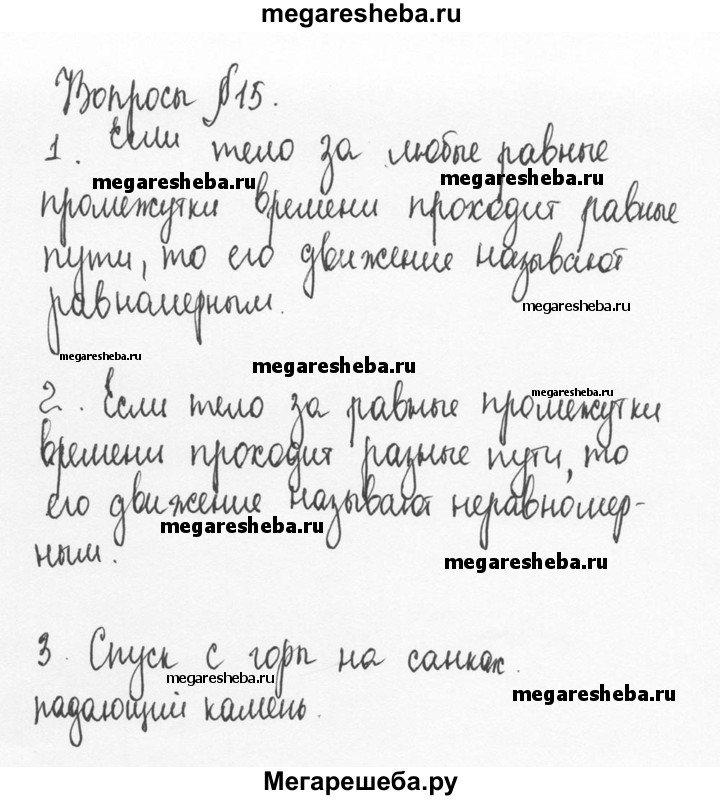 megaresheba.ru
Вопросы §15.
1. Если тело за любые равные
megaresheba.ru megaresheba.ru
промежутки времени проходит равные
пути, то его движение называют
равномерным. megaresheba.ru
megaresheba.ru megaresheba.ru
megaresheba.ru
2. Если тело за равные промежутки
времени проходит разные пути, то
его движение называют неравномер-
megaresheba.ru
ным. megaresheba.ru
3. Спуск с горы на санках.
megaresheba.ru megaresheba.ru
падающий камень.
Мегарешеба.ру